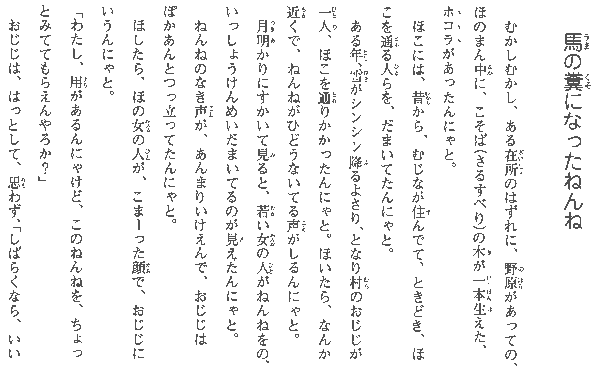 馬の糞になったねんね
むかしむかし、ある在所のはずれに、野原があっての、
ほのまん中に、こそば（さるすべり）の木が一本生えた、
ホコラがあったんにゃと。
ほこには、昔から、むじなが住んでて、ときどき、ほ
こを通る人らを、だまいてたんにゃと。
ある年、雪がシンシン降るよさり、となり村のおじじが
一人、ほこを通りかかったんにゃと。ほいたら、なんか
近くで、ねんねがひどうないてる声がしるんにゃと。
月明かりにすかいて見ると、若い女の人がねんねをの、
いっしょうけんめいだまいてるのが見えたんにゃと。
ねんねのなき声が、あんまりいけえんで、おじじは
ぽかあんとつっ立ってたんにゃと。
ほしたら、ほの女の人が、こまーった顔で、おじじに
いうんにゃと。
「わたし、用があるんにゃけど、このねんねを、ちょっ
とみててもらえんやろか？」
おじじは、はっとして、思わず、「しばらくなら、いい